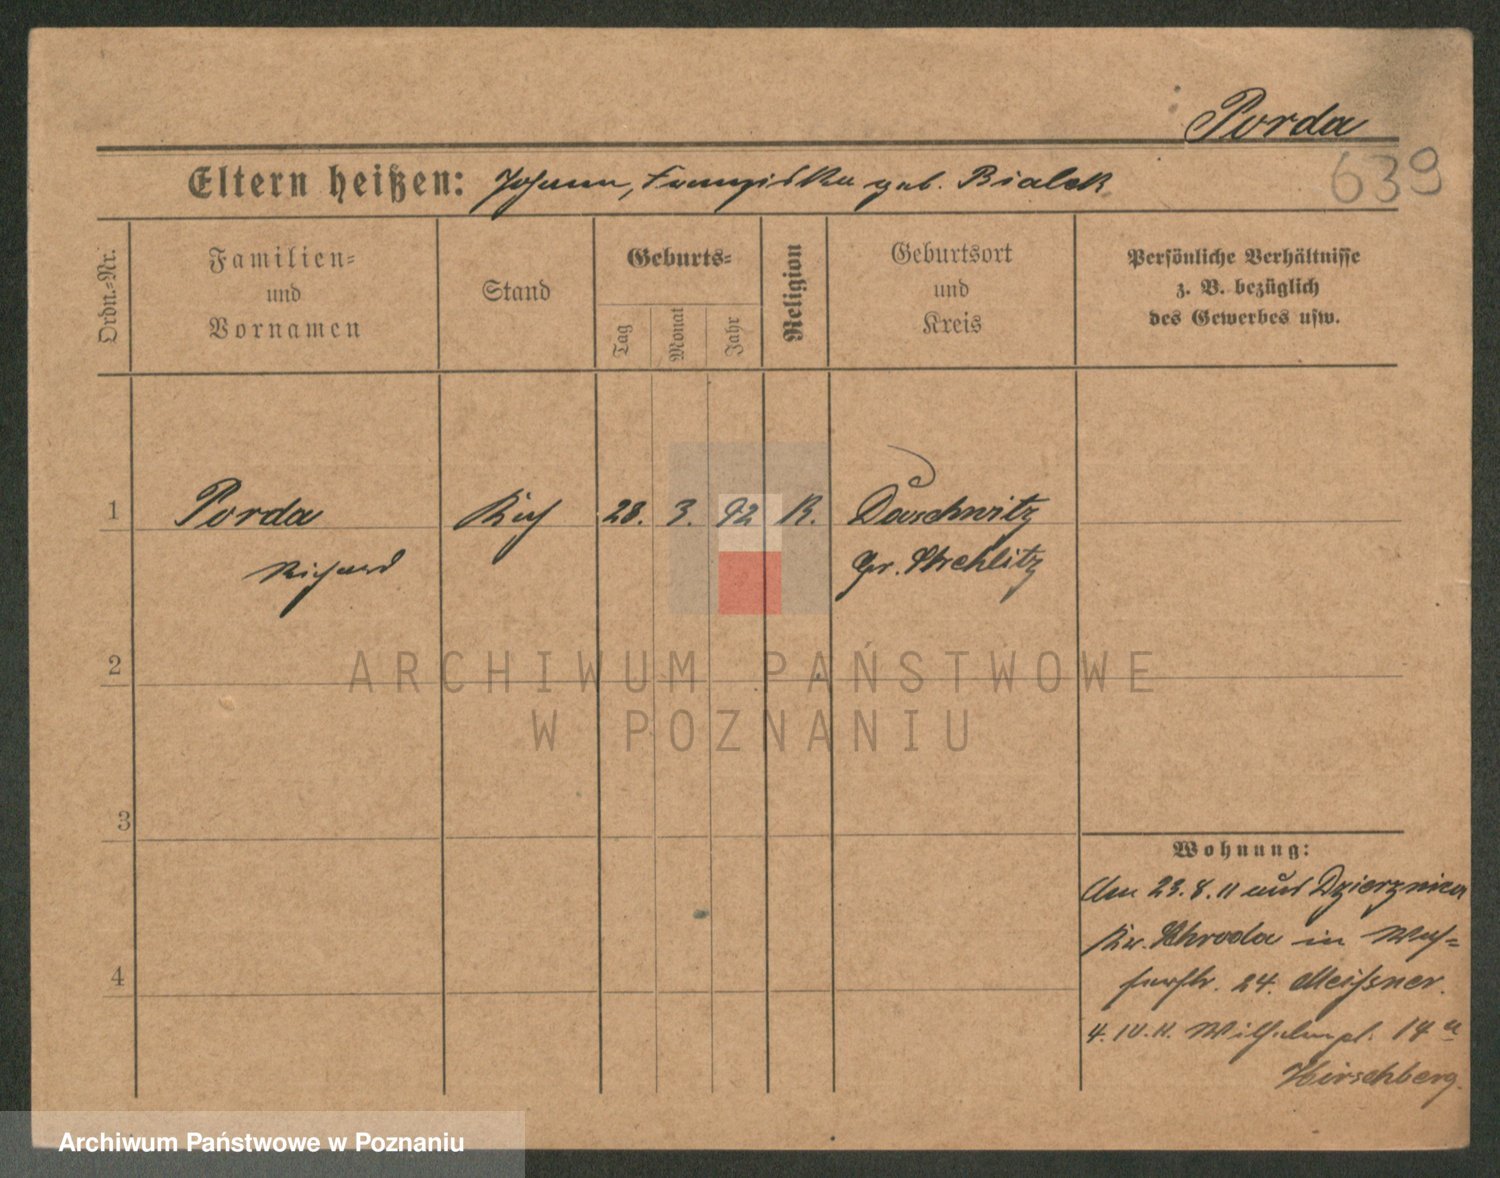 Porda
639
Eltern heißen: Johann, Franziska geb. Bialek
Ordn.-Nr.
Familien-
und
Vornamen
Stand
Geburts-
Tag
Monat
Jahr
Religion
Geburtsort
und
Kreis
Persönliche Verhältnisse
z. B. bezüglich
des Gewerbes usw.
1
Porda
Richard
28. 3. 92
K.
Daschwitz
Gr. Strehlitz
2
3
4
ARCHIWUM PAŃSTWOWE
W POZNANIU
Wohnung:
Am 23.8.11 aus Dzierznica
Kr. Schroda in
24. Meissner.
4.10.11. Wilhelmpl. 14a
Hirschberg.
Archiwum Państwowe w Poznaniu